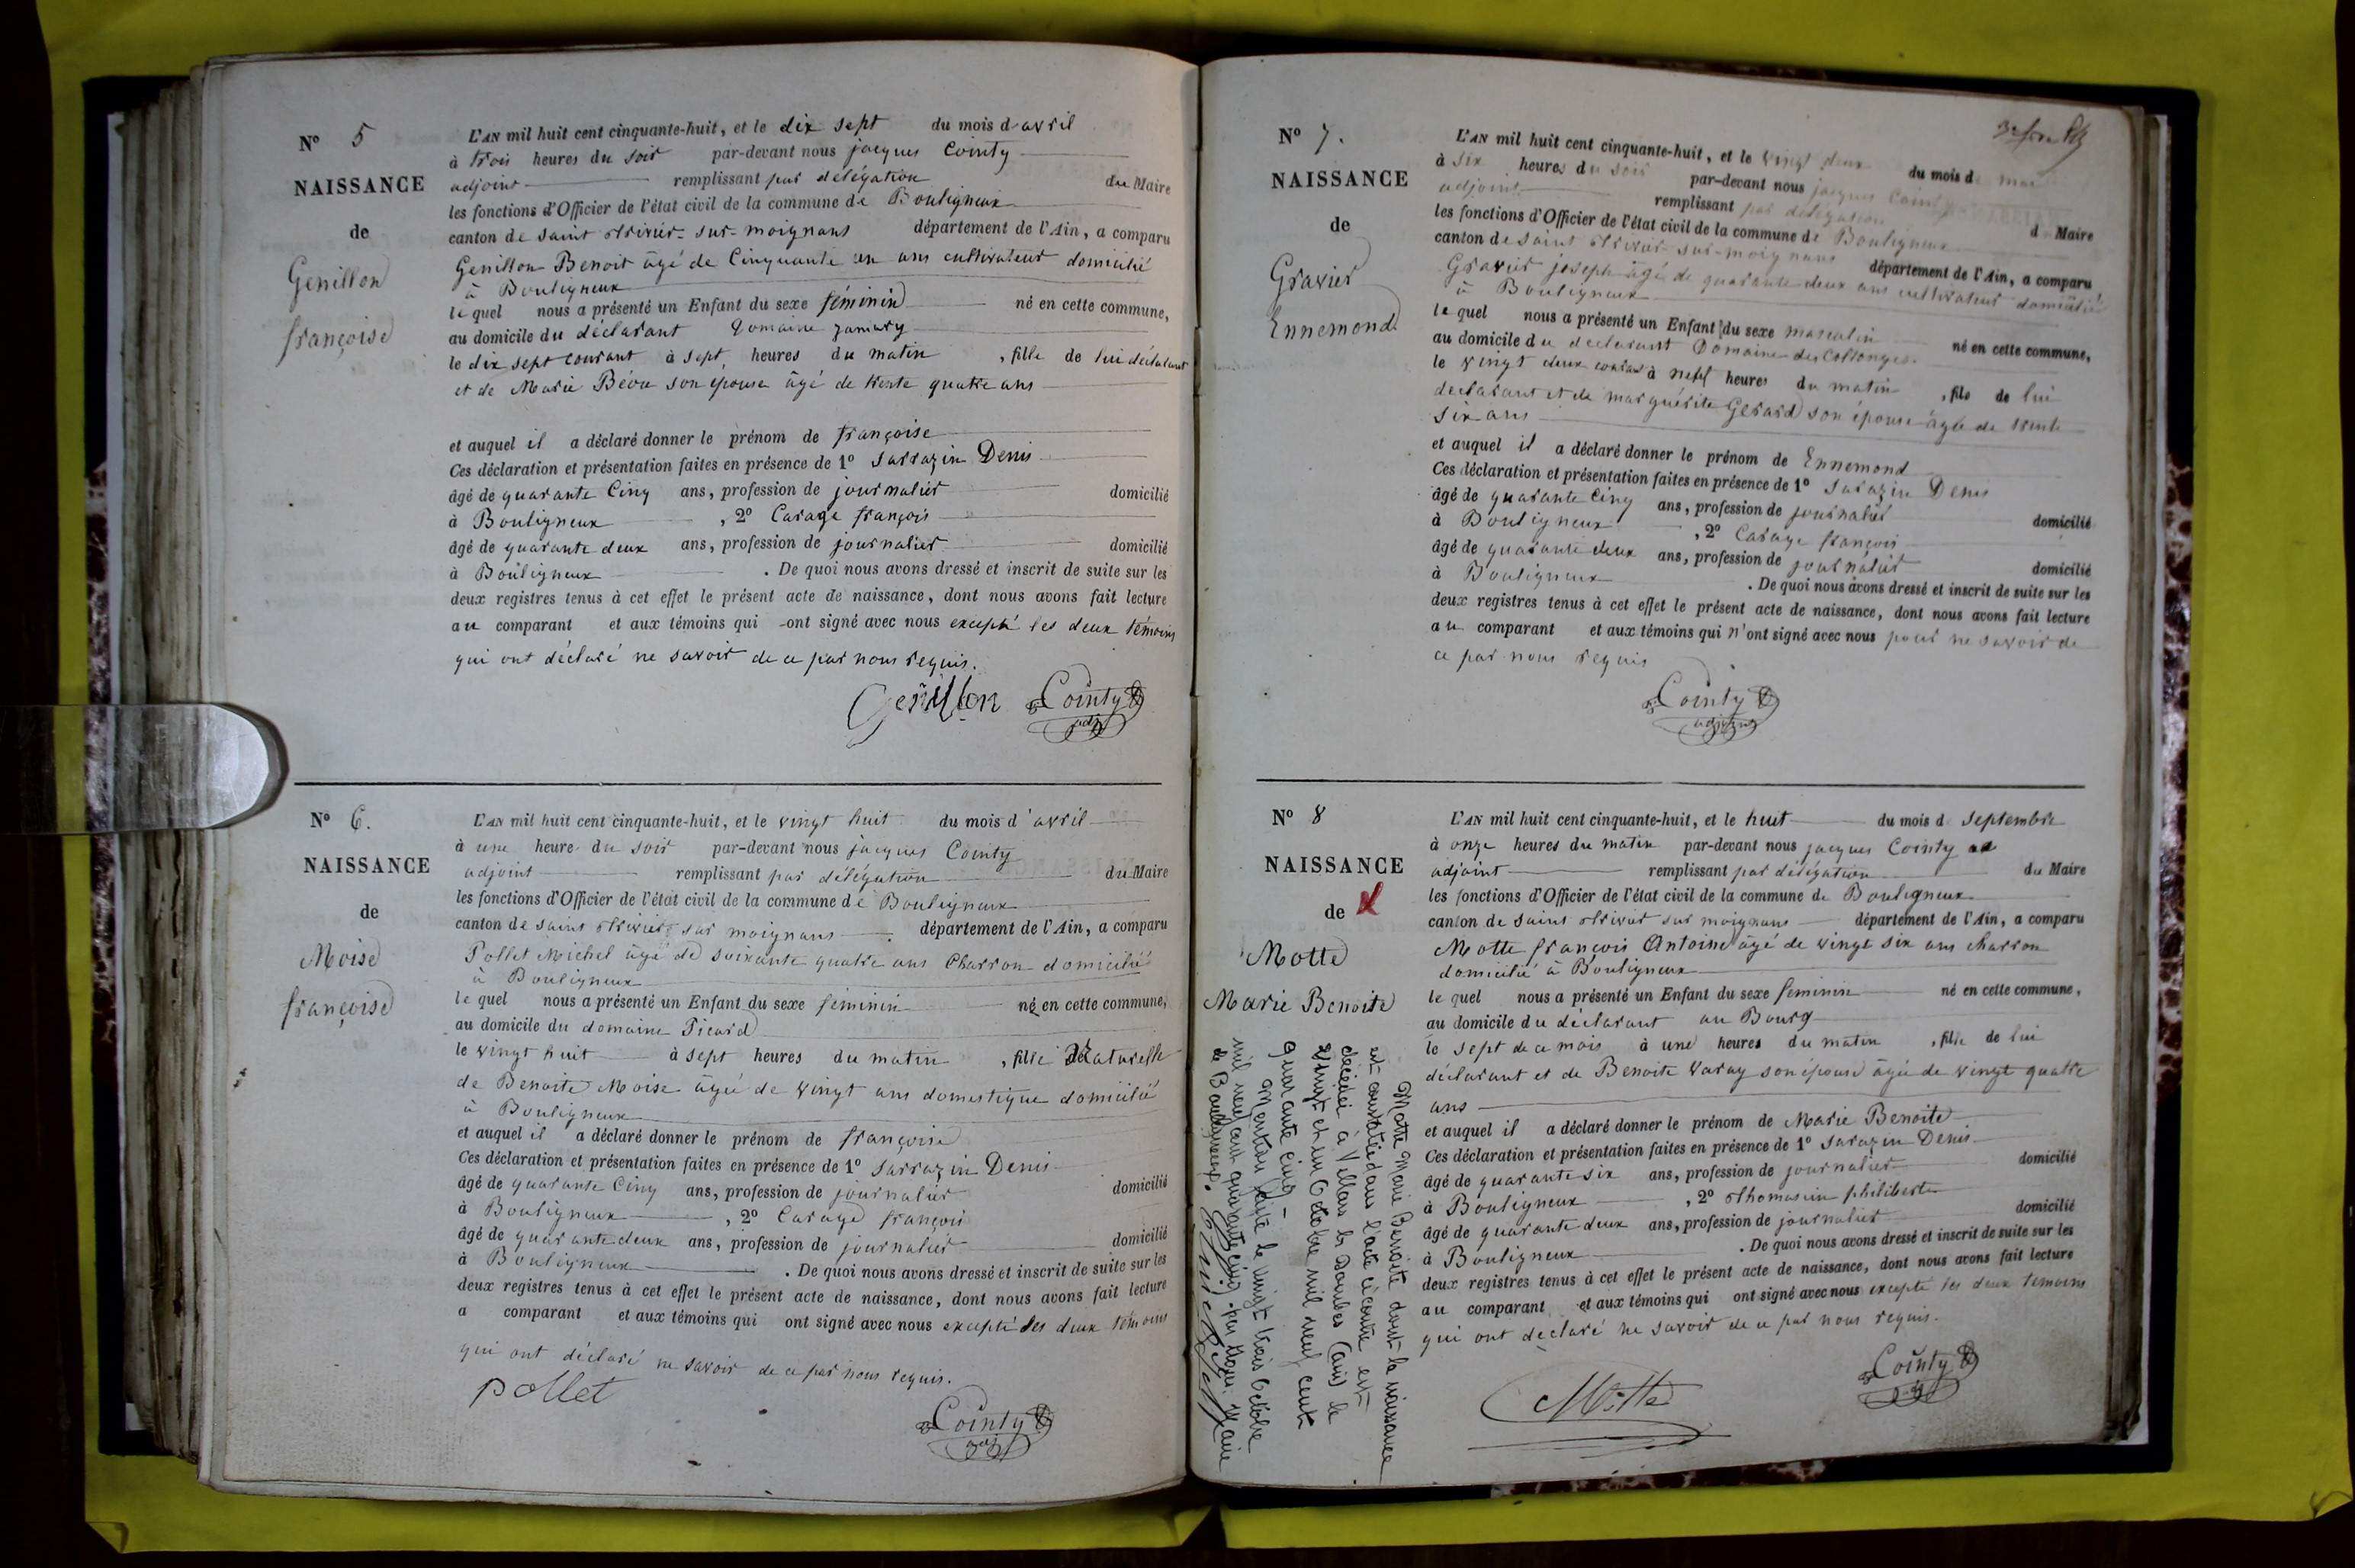 N° 5
NAISSANCE
de
Genillon
françoise
L'AN mil huit cent cinquante-huit, et le dix sept du mois d'avril
à trois heures du soir par-devant nous jacques Cointy
adjoint remplissant par délégation du Maire
les fonctions d'Officier de l'état civil de la commune de Bouligneux
canton de saint trivier-sur-moignans département de l'Ain, a comparu
Genillon Benoit âgé de Cinquante un ans cultivateur domicilié
à Bouligneux
le quel nous a présenté un Enfant du sexe féminin né en cette commune,
au domicile du déclarant Domaine
le dix sept courant à sept heures du matin, fille de lui déclarant
et de Marie son épouse âgé de trente quatre ans
et auquel il a déclaré donner le prénom de françoise
Ces déclaration et présentation faites en présence de 1° Sarrazin Denis
âgé de quarante Cinq ans, profession de journalier domicilié
à Bouligneux, 2° Carage françois
âgé de quarante deux ans, profession de journalier domicilié
à Bouligneux. De quoi nous avons dressé et inscrit de suite sur les
deux registres tenus à cet effet le présent acte de naissance, dont nous avons fait lecture
au comparant et aux témoins qui ont signé avec nous excepté les deux témoins
qui ont déclaré ne savoir de ce par nous requis.
Genillon Cointy
adj
N° 6.
NAISSANCE
de
Moise
françoise
L'AN mil huit cent cinquante-huit, et le vingt huit du mois d'avril
à une heure du soir par-devant nous jacques Cointy
adjoint remplissant par délégation du Maire
les fonctions d'Officier de l'état civil de la commune de Bouligneux
canton de saint trivier sur moignans département de l'Ain, a comparu
Pollet Michel âgé de soixante quatre ans Charron domicilié
à Bouligneux
le quel nous a présenté un Enfant du sexe féminin né en cette commune,
au domicile du domaine Picard
le vingt huit à sept heures du matin, fille Naturelle
de Benoite Moise âgée de vingt ans domestique domicilié
à Bouligneux
et auquel il a déclaré donner le prénom de françoise
Ces déclaration et présentation faites en présence de 1° Sarrazin Denis
âgé de quarante Cinq ans, profession de journalier domicilié
à Bouligneux, 2° Carage françois
âgé de quarante deux ans, profession de journalier domicilié
à Bouligneux. De quoi nous avons dressé et inscrit de suite sur les
deux registres tenus à cet effet le présent acte de naissance, dont nous avons fait lecture
a comparant et aux témoins qui ont signé avec nous excepté les deux témoins
qui ont déclaré ne savoir de ce par nous requis.
pollet
Cointy
adj
N° 7.
NAISSANCE
de
Gravier
Ennemond
L'AN mil huit cent cinquante-huit, et le vingt deux du mois de mai
à six heures du soir par-devant nous jacques Cointy
adjoint remplissant par délégation d Maire
les fonctions d'Officier de l'état civil de la commune de Bouligneux
canton de saint trivier-sur-moignans département de l'Ain, a comparu
Gravier joseph âgé de quarante deux ans cultivateur domicilié
à Bouligneux
le quel nous a présenté un Enfant du sexe masculin né en cette commune,
au domicile du déclarant Domaine des Collonges
le vingt deux courant à neuf heures du matin, fils de lui
déclarant et de marguérite Gerard son épouse âgée de trente
six ans
et auquel il a déclaré donner le prénom de Ennemond
Ces déclaration et présentation faites en présence de 1° Sarazin Denis
âgé de quarante Cinq ans, profession de journalier domicilié
à Bouligneux, 2° Carage françois
âgé de quarante deux ans, profession de journalier domicilié
à Bouligneux. De quoi nous avons dressé et inscrit de suite sur les
deux registres tenus à cet effet le présent acte de naissance, dont nous avons fait lecture
au comparant et aux témoins qui n'ont signé avec nous pour ne savoir de
ce par nous requis
Cointy
adjoint
N° 8
NAISSANCE
de
Motte
Marie Benoite
L'AN mil huit cent cinquante-huit, et le huit du mois d Septembre
à onze heures du matin par-devant nous jacques Cointy ad
adjoint remplissant par délégation du Maire
les fonctions d'Officier de l'état civil de la commune de Bouligneux
canton de saint trivier sur moignans département de l'Ain, a comparu
Motte françois Antoine âgé de vingt six ans charron
domicilié à Bouligneux
le quel nous a présenté un Enfant du sexe féminin né en cette commune,
au domicile du déclarant au Bourg
le sept de ce mois à une heures du matin, fille de lui
déclarant et de Benoite Varay son épouse âgée de vingt quatre
ans
et auquel il a déclaré donner le prénom de Marie Benoite
Ces déclaration et présentation faites en présence de 1° Sarazin Denis
âgé de quarante six ans, profession de journalier domicilié
à Bouligneux, 2° thomasin philiberte
âgé de quarante deux ans, profession de journalier domicilié
à Bouligneux. De quoi nous avons dressé et inscrit de suite sur les
deux registres tenus à cet effet le présent acte de naissance, dont nous avons fait lecture
au comparant et aux témoins qui ont signé avec nous excepté les deux témoins
qui ont déclaré ne savoir de ce par nous requis.
Motte Cointy
adj
Motte Marie Benoite dont la naissance
est constatée dans l'acte ci contre est
décédée à Villars les Dombes (Ain) le
vingt et un Octobre mil neuf cent
quarante cinq -
Mention faite le vingt trois Octobre
mil neuf cent quarante cinq par Nous Maire
de Bouligneux.